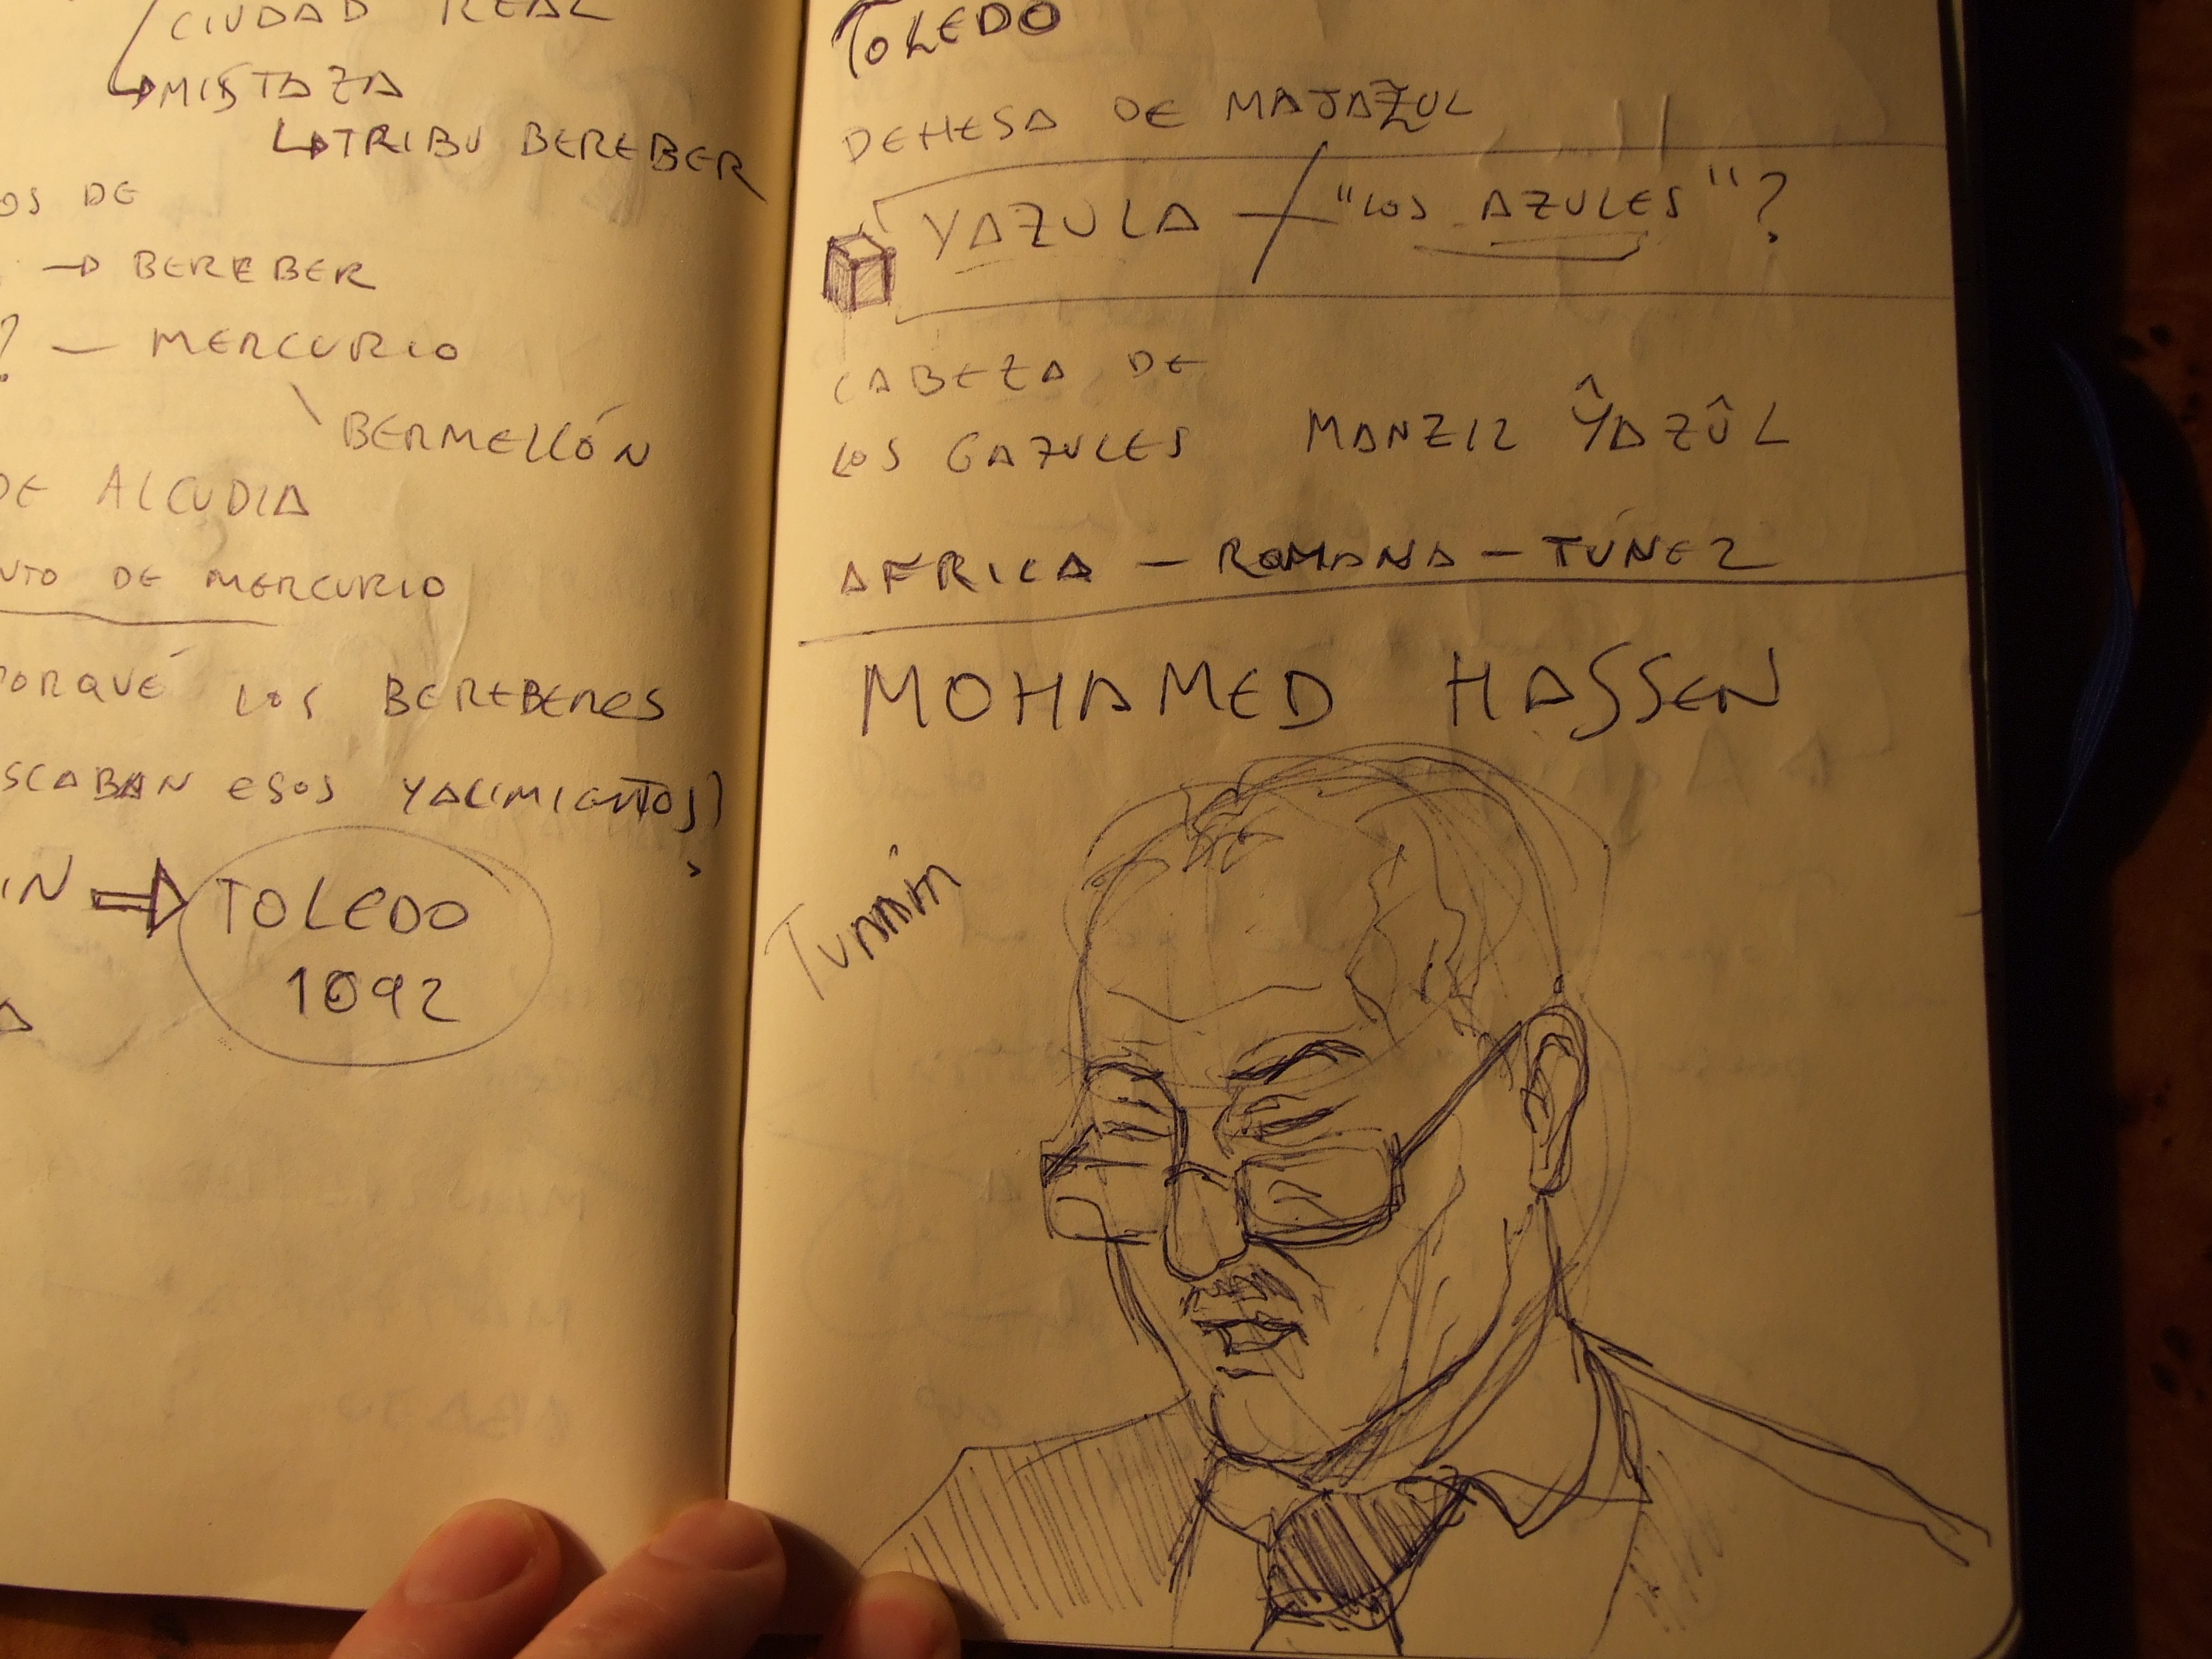 CIUDAD REAL
MISTAZA
TRIBU BEREBER
OS DE
BEREBER
? — MERCURIO
BERMELLÓN
DE ALCUDIA
NTO DE MERCURIO
PORQUÉ LOS BEREBERES
SCABAN ESOS YACIMIENTOS)
IN ⇒ TOLEDO
1092
TOLEDO
DEHESA DE MAJAZUL
YAZULA — "LOS AZULES"?
CABEZA DE
LOS GAZULES MANZIL ŶAZÛL
AFRICA — ROMANA — TÚNEZ
MOHAMED HASSEN